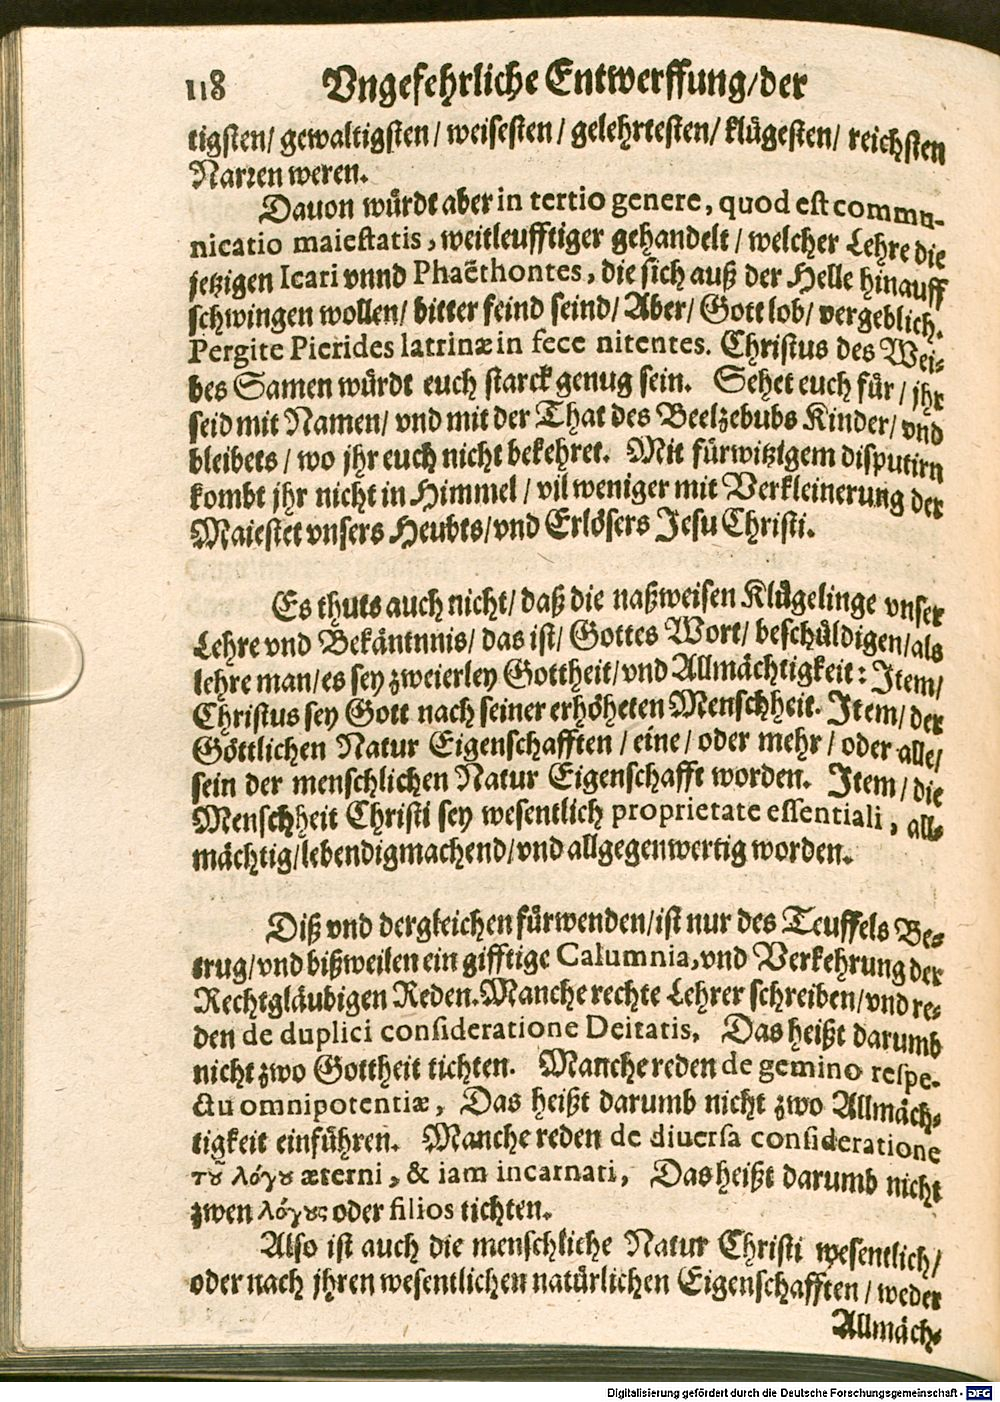 118 Vngefehrliche Entwerffung/der
tigsten/ gewaltigsten/ weisesten/ gelehrtesten/ klügesten/ reichsten
Narren weren.
Dauon würdt aber in tertio genere, quod est commu-
nicatio maiestatis, weitleufftiger gehandelt/ welcher Lehre die
jetzigen Icari vnnd Phaëthontes, die sich auß der Helle hinauff
schwingen wollen/ bitter feind seind/ Aber/ Gott lob/ vergeblich.
Pergite Pierides latrinæ in fece nitentes. Christus des Wei-
bes Samen würdt euch starck genug sein. Sehet euch für/ jhr
seid mit Namen/ vnd mit der That des Beelzebubs Kinder/ vnd
bleibets/ wo jhr euch nicht bekehret. Mit fürwitzigem disputirn
kombt jhr nicht in Himmel/ vil weniger mit Verkleinerung der
Maiestet vnsers Heubts/ vnd Erlösers Jesu Christi.
Es thuts auch nicht/ daß die naßweisen Klügelinge vnser
Lehre vnd Bekäntnnis/ das ist/ Gottes Wort/ beschüldigen/ als
lehre man/ es sey zweierley Gottheit/ vnd Allmächtigkeit: Item/
Christus sey Gott nach seiner erhöheten Menschheit. Item/ der
Göttlichen Natur Eigenschafften/ eine/ oder mehr/ oder alle/
sein der menschlichen Natur Eigenschafft worden. Item/ die
Menschheit Christi sey wesentlich proprietate essentiali, all-
mächtig/ lebendigmachend/ vnd allgegenwertig worden.
Diß vnd dergleichen fürwenden/ ist nur des Teuffels Be-
trug/ vnd bißweilen ein gifftige Calumnia, vnd Verkehrung der
Rechtgläubigen Reden. Manche rechte Lehrer schreiben/ vnd re-
den de duplici consideratione Deitatis, Das heißt darumb
nicht zwo Gottheit tichten. Manche reden de gemino respe-
ctu omnipotentiæ, Das heißt darumb nicht zwo Allmäch-
tigkeit einführen. Manche reden de diuersa consideratione
τοῦ λόγου æterni, & iam incarnati, Das heißt darumb nicht
zwen λόγους oder filios tichten.
Also ist auch die menschliche Natur Christi wesentlich/
oder nach jhren wesentlichen natürlichen Eigenschafften/ weder
Allmäch-
Digitalisierung gefördert durch die Deutsche Forschungsgemeinschaft - DFG